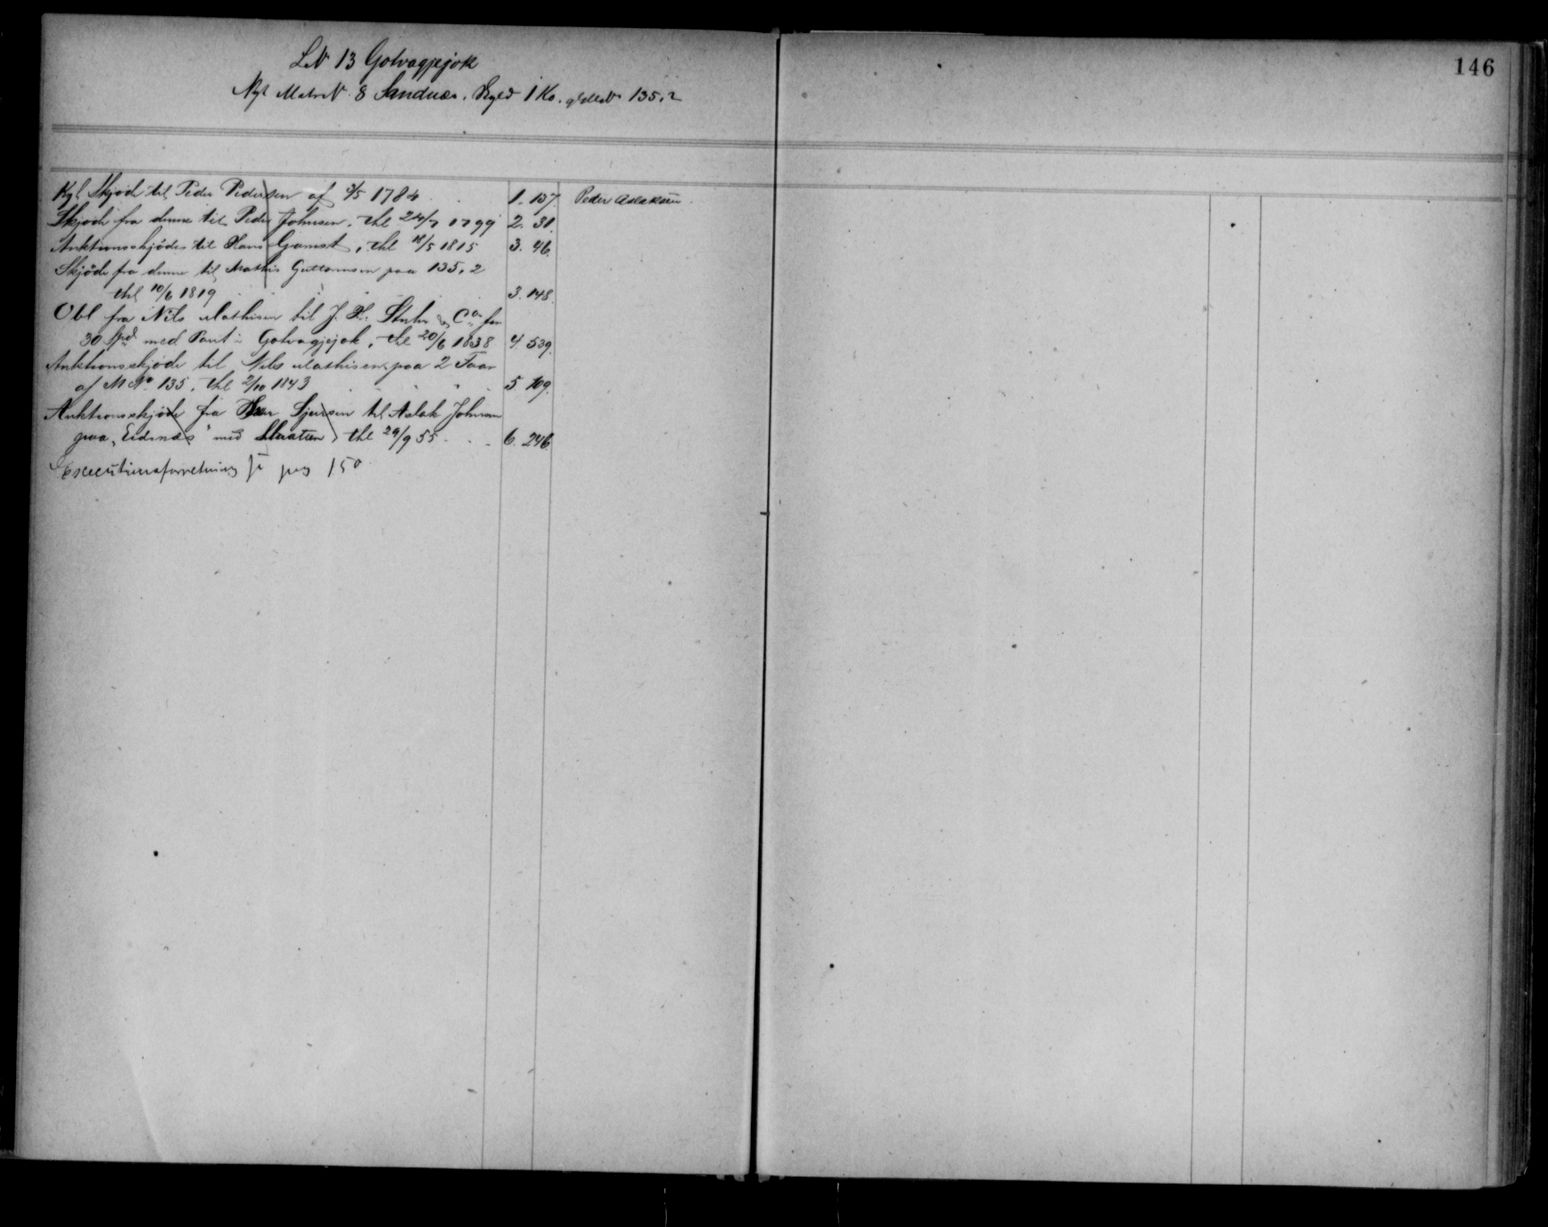 146
LN 13 Golvagjejok
Nyt Matr N 8 Sandnæs. Skyld 1 Ko. gl. MatN 135.2
Kgl Skjøde til Peder Pedersen af 3/5 1784 1. 157. Peder Aslaksen
Skjøde fra denne til Peder Johnsen, thl 24/7 1799 2. 31.
Auktionsskjøde til Hans Gamst, thl 11/5 1815 3. 46.
Skjøde fra denne til Mathis Guttormsen paa 135.2
thl 10/6 1819 3. 148.
Obl fra Nils Mathisen til J. H. & Co for
30 Spd med Pant i Golvagjejok, thl 20/6 1838 4. 539.
Auktionsskjøde til Nils Mathisen paa 2
af M No 135, thl 2/10 1843 5. 109.
Auktionsskjøde fra til Aslak Johnsen
paa "Eidsnæs" med thl 29/9 55 6. 246.
Executionsforretning pag 150